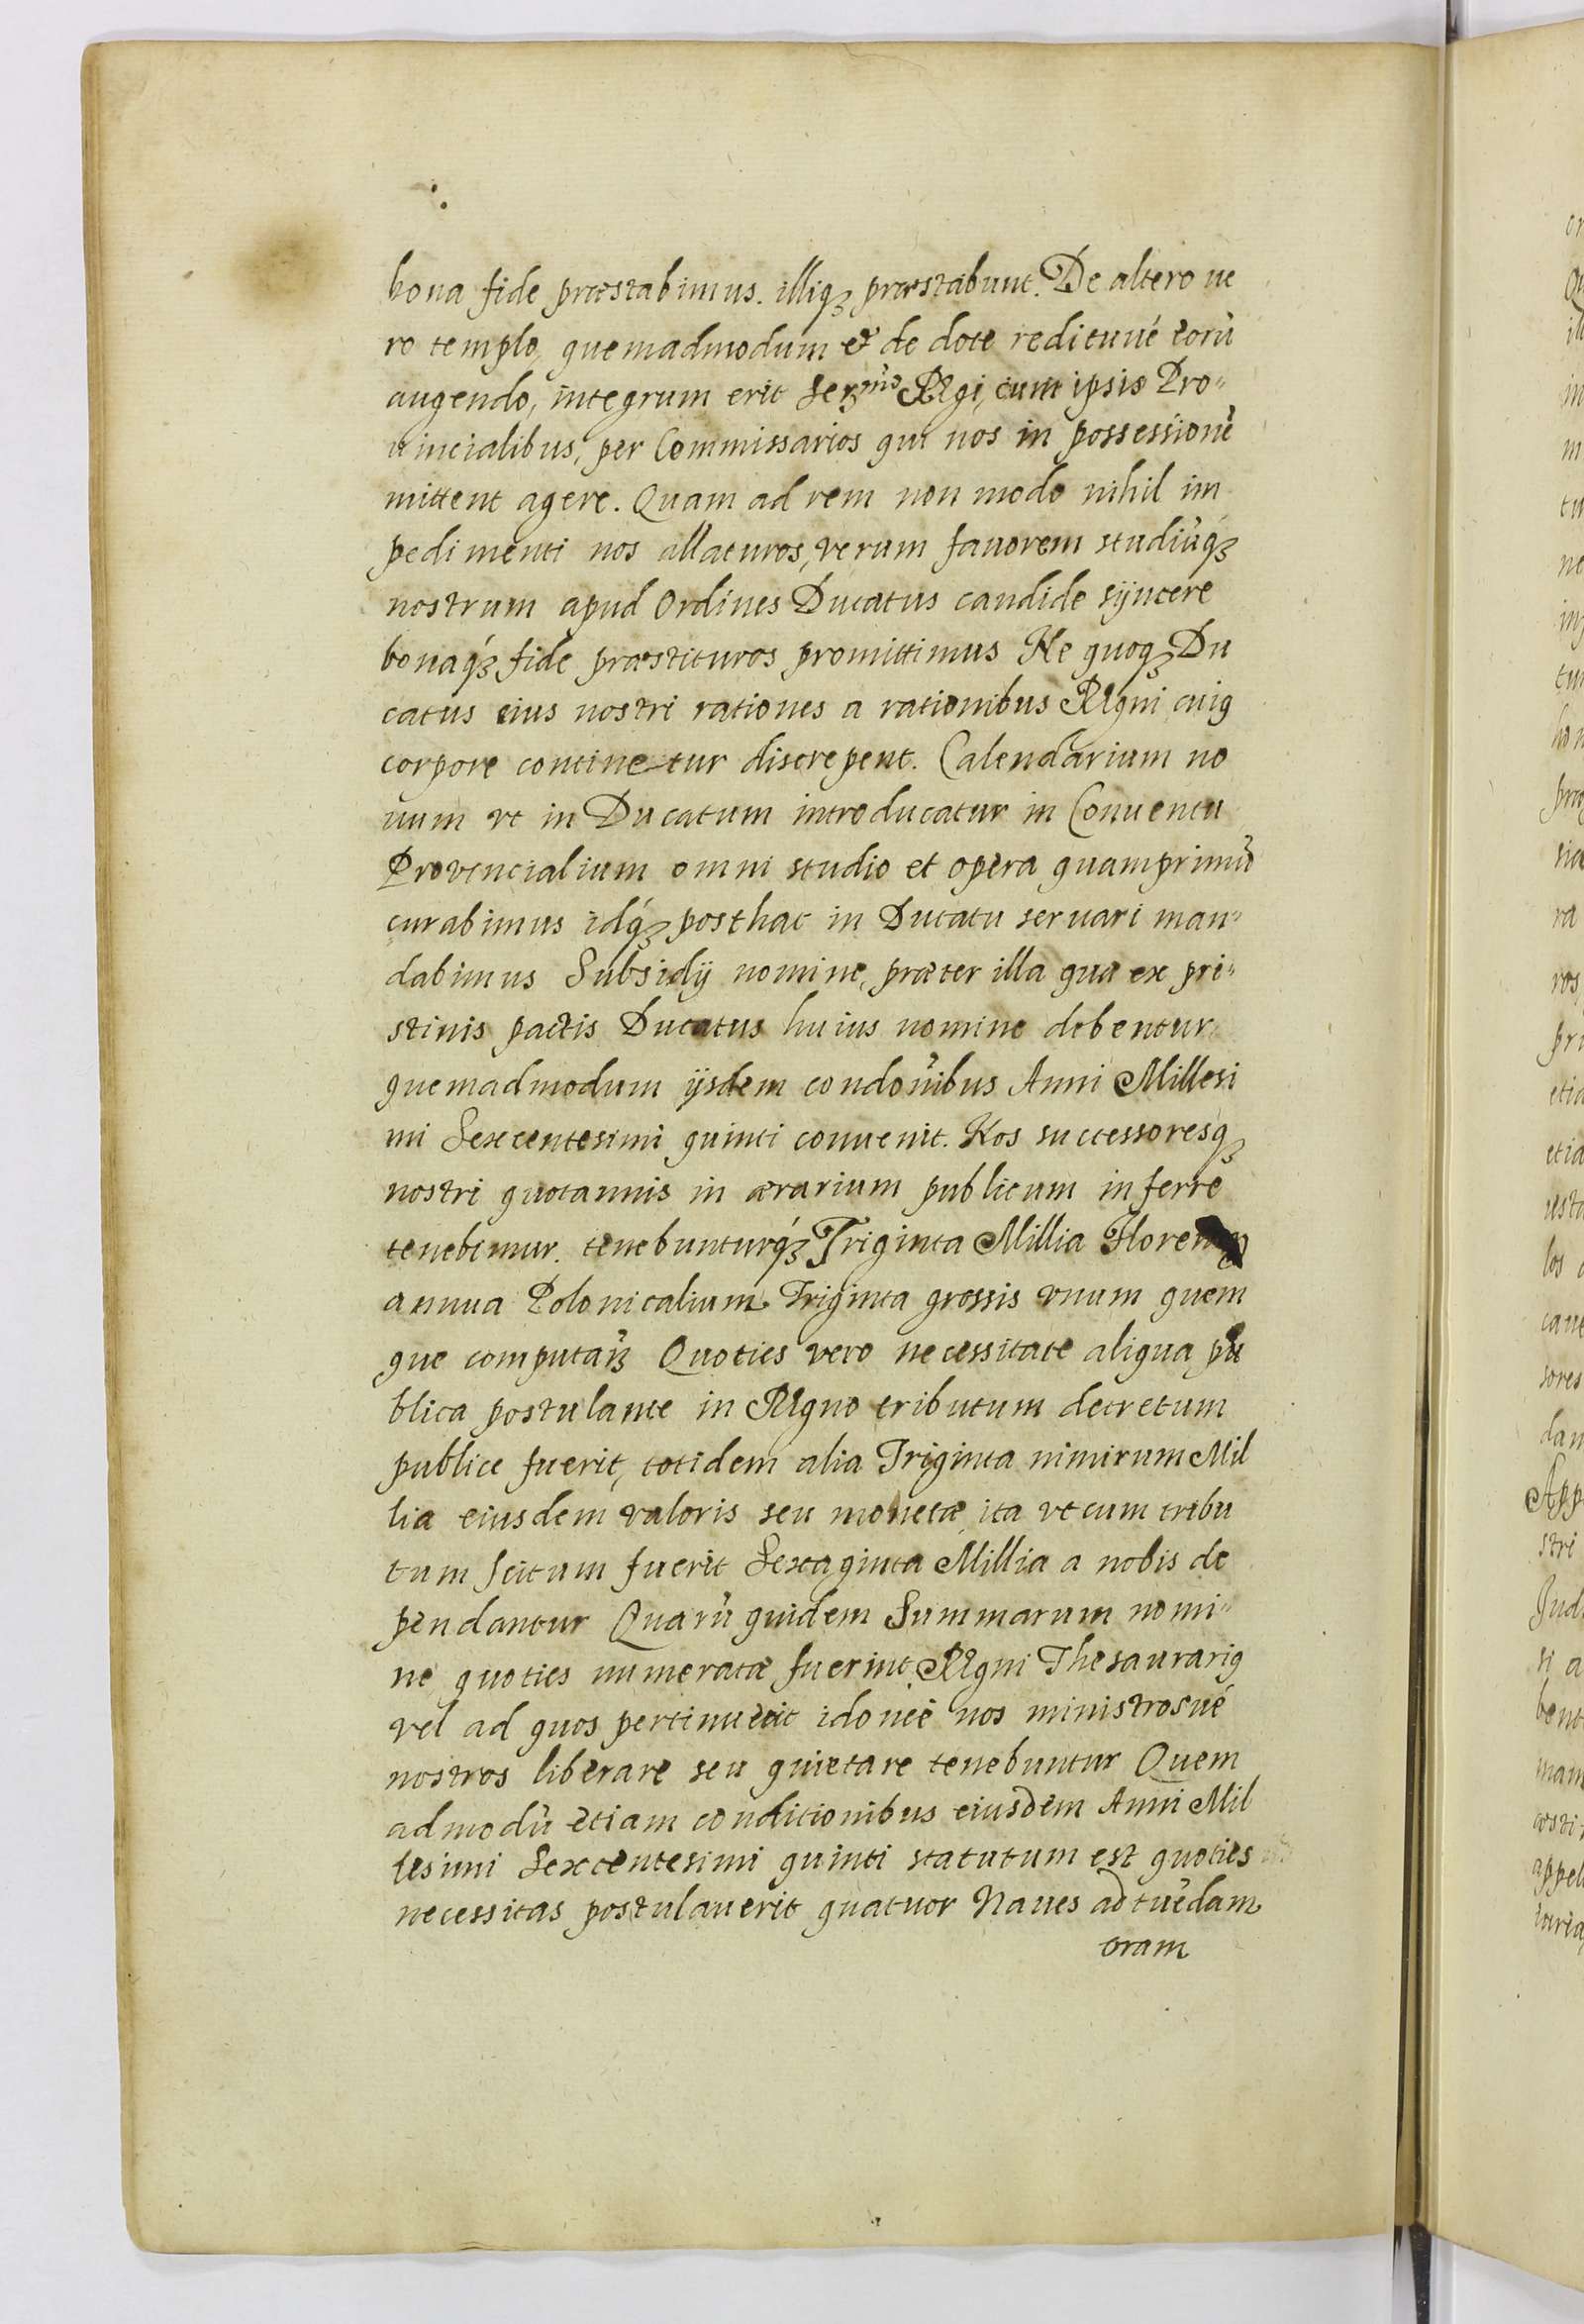 bona fide præstabimus. illiqꝫ præstabunt. De altero ve
ro templo, quemadmodum et de dote reditũue eorũ
augendo, integrum erit Serᵐᵒ Regi, cum ipsis Pro-
uincialibus, per Commissarios qui nos in possessionẽ
mittent agere. Quam ad rem non modo nihil im
pedimenti nos allaturos, verum fauorem studiũqꝫ
nostrum apud Ordines Ducatus candide syncere
bonaqꝫ fide præstituros promittimus Ne quoqꝫ Du
catus eius nostri rationes a rationibus Regni cuiꝰ
corpore continetur discrepent. Calendarium no
uum vt in Ducatum introducatur in Conuentu
Provencialium omni studio et opera quamprimũ
curabimus idqꝫ posthac in Ducatu seruari man-
dabimus Subsidij nomine, præter illa quæ ex pri-
stinis pactis Ducatus huius nomine debentur
quemadmodum ijsdem condoñibus Anni Millesi
mi Sexcentesimi quinti conuenit. Nos successoresqꝫ
nostri quotannis in ærarium publicum inferre
tenebimur. tenebunturqꝫ Triginta Millia
annua Polonicalium Triginta grossis vnum quem
que computañ Quoties vero necessitate aliqua pu
blica postulante in Regno tributum decretum
publice fuerit, totidem alia Triginta nimirum Mil
lia eiusdem valoris seu monetæ ita vt cum tribu
tum scitum fuerit Sexaginta Millia a nobis de
pendantur Quarũ quidem Summarum nomi-
ne quoties numeratæ fuerint Regni Thesaurariꝰ
vel ad quos pertinuerit idonee nos ministrosue
nostros liberare seu quietare tenebuntur Quem
admodũ etiam conditionibus eiusdem Anni Mil
lesimi Sexcentesimi quinti statutum est quoties
necessitas postulauerit quatuor Naues ad tuẽdam
oram